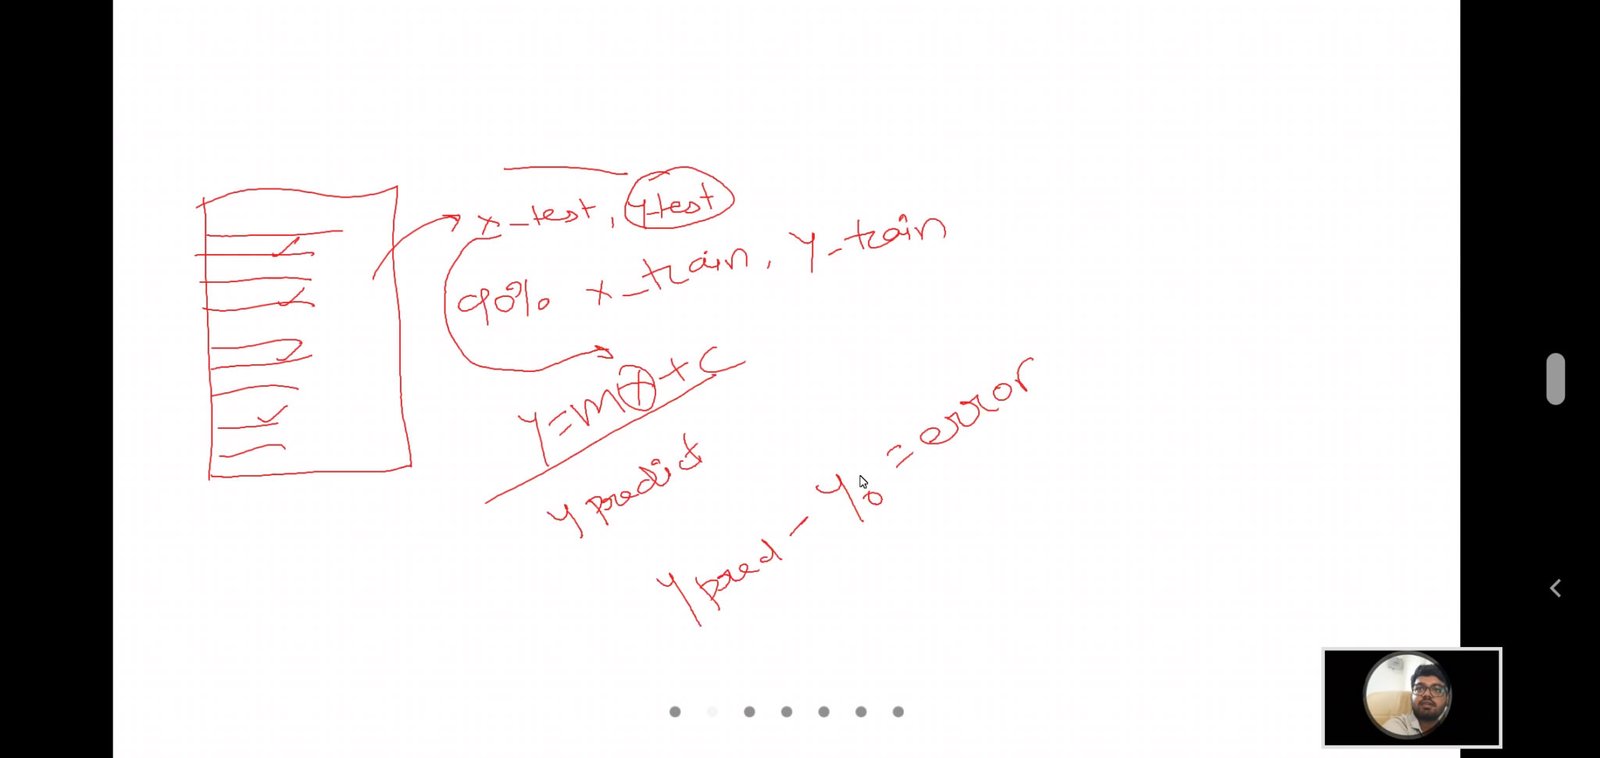 x_test, y_test
90% x_train, y_train
y=mx+c
y predict
y pred - y₀ = error